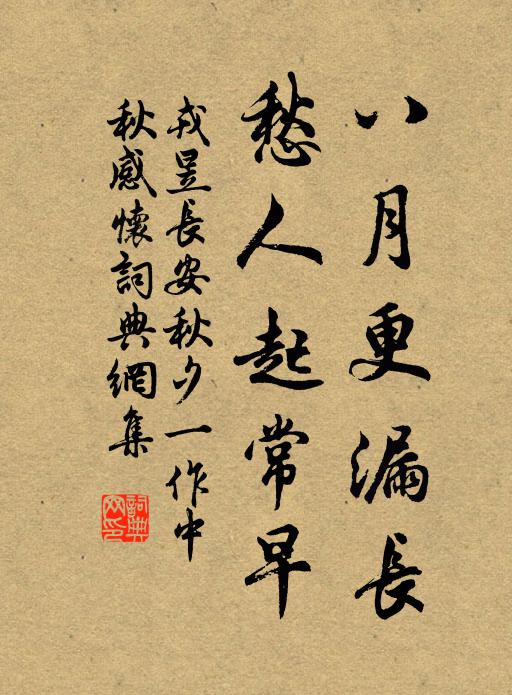 八月更漏長
愁人起常早
戎昱長安秋夕一作中
秋感懷詞典網集
詞典
网印